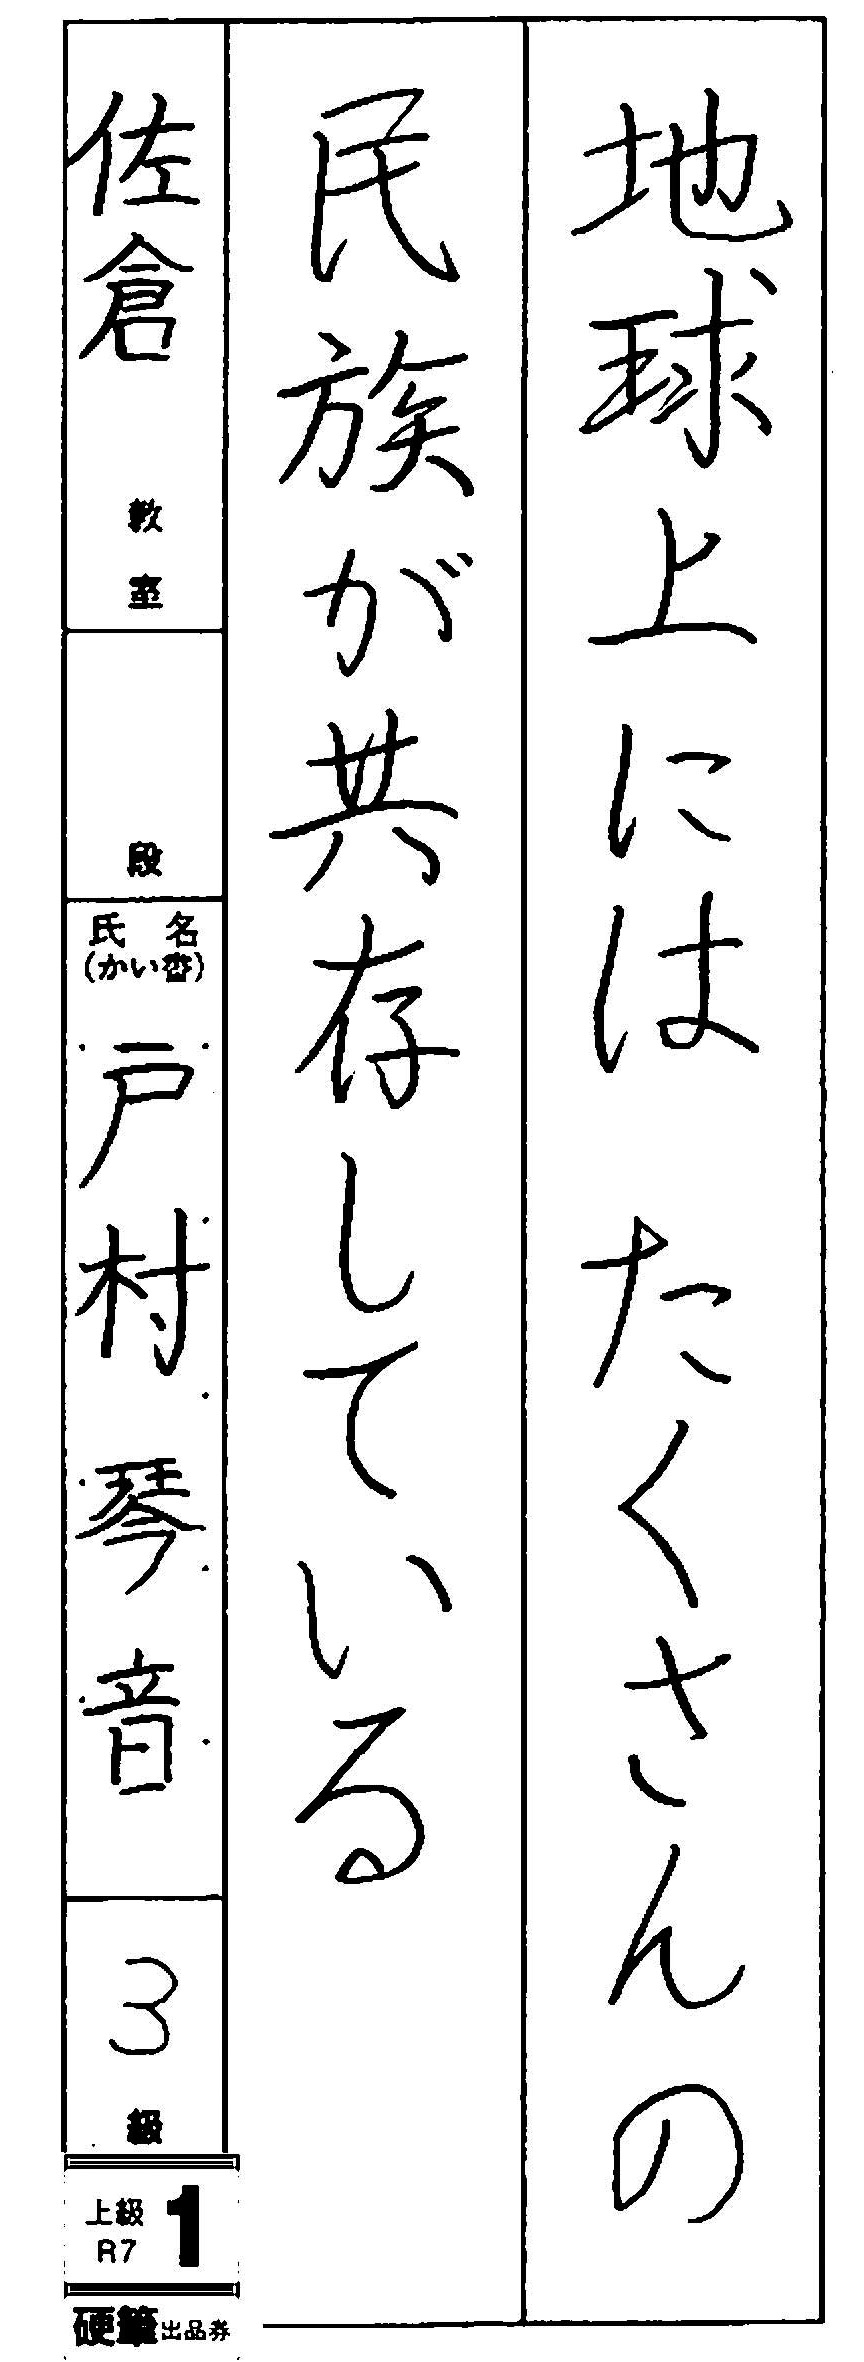 地球上にはたくさんの
民族が共存している
佐倉教室
段
氏名
(かい書)
戸村琴音
3級
上級
R7
1
硬筆出品券